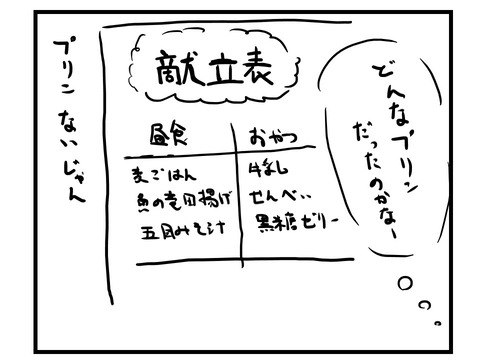 どんなプリン
だったのかなー
献立表
昼食
おやつ
麦ごはん
魚の竜田揚げ
五目みそ汁
牛乳
せんべい
黒糖ゼリー
プリン ないじゃん